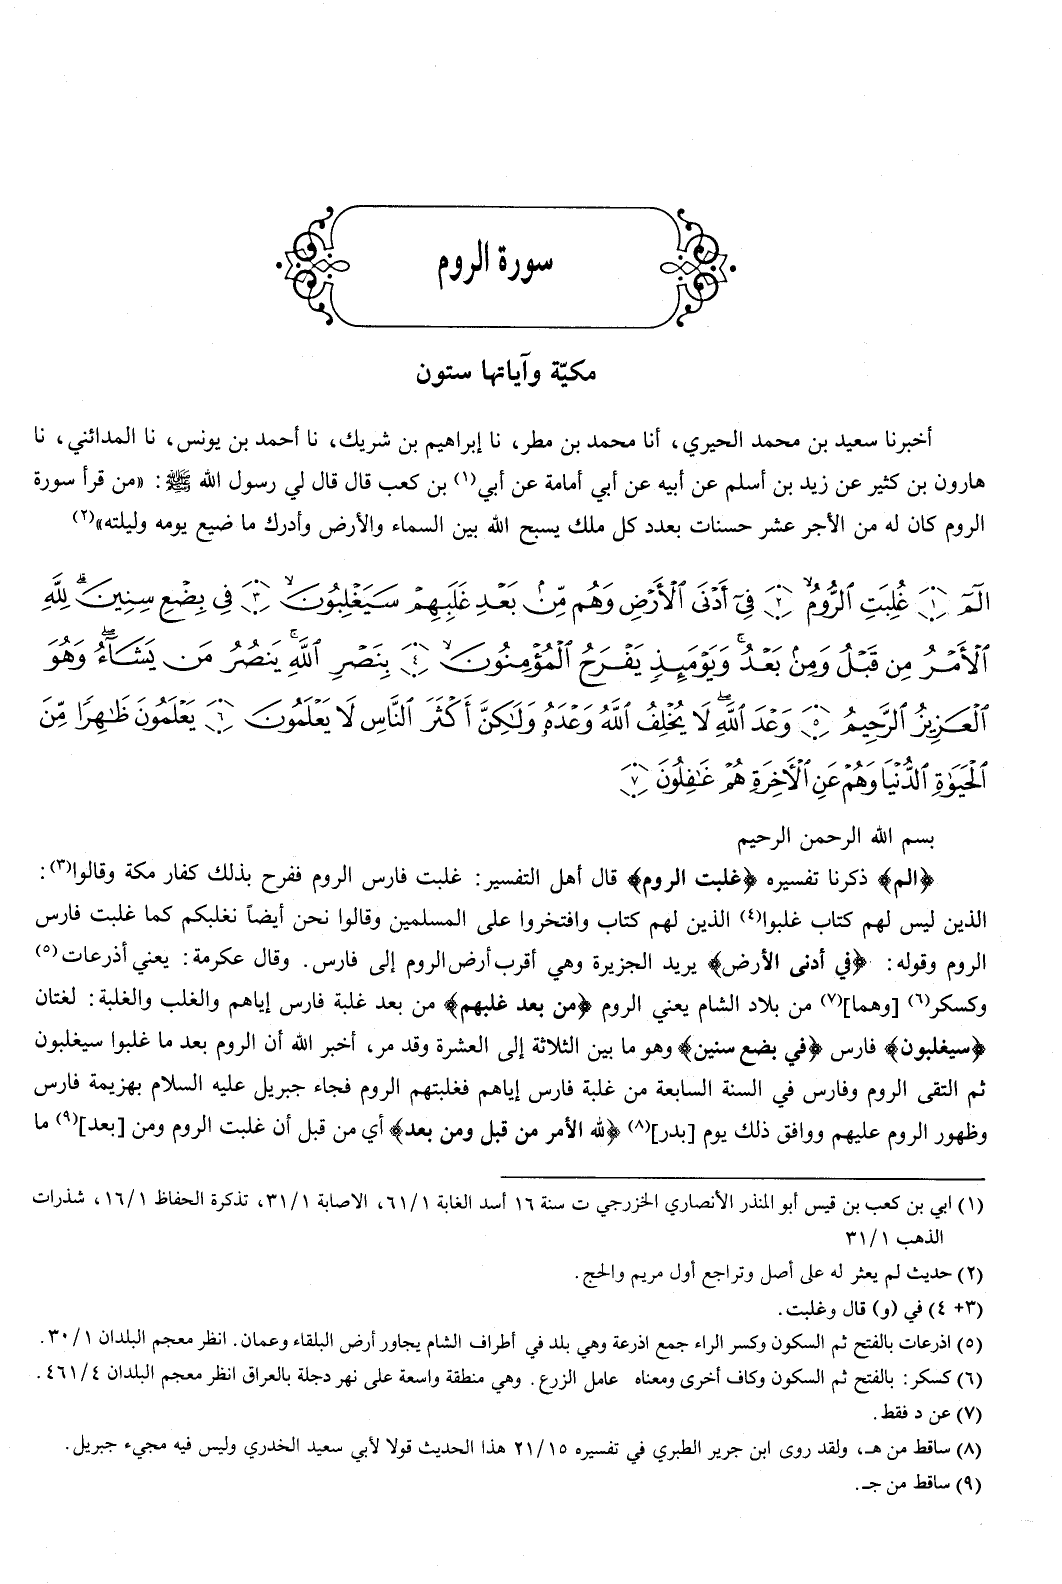 سورة الروم
مكيّة وآياتها ستون
أخبرنا سعيد بن محمد الحيري، أنا محمد بن مطر، نا إبراهيم بن شريك، نا أحمد بن يونس، نا المدائني، نا
هارون بن كثير عن زيد بن أسلم عن أبيه عن أبي أمامة عن أبي(١) بن كعب قال قال لي رسول الله ﷺ: «من قرأ سورة
الروم كان له من الأجر عشر حسنات بعدد كل ملك يسبح الله بين السماء والأرض وأدرك ما ضيع يومه وليلته»(٢)
الٓمٓ ﴿١﴾ غُلِبَتِ ٱلرُّومُ ﴿٢﴾ فِىٓ أَدْنَى ٱلْأَرْضِ وَهُم مِّنۢ بَعْدِ غَلَبِهِمْ سَيَغْلِبُونَ ﴿٣﴾ فِى بِضْعِ سِنِينَ ۗ لِلَّهِ
ٱلْأَمْرُ مِن قَبْلُ وَمِنۢ بَعْدُ ۚ وَيَوْمَئِذٍ يَفْرَحُ ٱلْمُؤْمِنُونَ ﴿٤﴾ بِنَصْرِ ٱللَّهِ ۚ يَنصُرُ مَن يَشَآءُ ۖ وَهُوَ
ٱلْعَزِيزُ ٱلرَّحِيمُ ﴿٥﴾ وَعْدَ ٱللَّهِ ۖ لَا يُخْلِفُ ٱللَّهُ وَعْدَهُۥ وَلَٰكِنَّ أَكْثَرَ ٱلنَّاسِ لَا يَعْلَمُونَ ﴿٦﴾ يَعْلَمُونَ ظَٰهِرًا مِّنَ
ٱلْحَيَوٰةِ ٱلدُّنْيَا وَهُمْ عَنِ ٱلْأَخِرَةِ هُمْ غَٰفِلُونَ ﴿٧﴾
بسم الله الرحمن الرحيم
﴿الم﴾ ذكرنا تفسيره ﴿غلبت الروم﴾ قال أهل التفسير: غلبت فارس الروم ففرح بذلك كفار مكة وقالوا(٣):
الذين ليس لهم كتاب غلبوا(٤) الذين لهم كتاب وافتخروا على المسلمين وقالوا نحن أيضاً نغلبكم كما غلبت فارس
الروم وقوله: ﴿في أدنى الأرض﴾ يريد الجزيرة وهي أقرب أرض الروم إلى فارس. وقال عكرمة: يعني أذرعات(٥)
وكسكر(٦) [وهما](٧) من بلاد الشام يعني الروم ﴿من بعد غلبهم﴾ من بعد غلبة فارس إياهم والغلب والغلبة: لغتان
﴿سيغلبون﴾ فارس ﴿في بضع سنين﴾ وهو ما بين الثلاثة إلى العشرة وقد مر، أخبر الله أن الروم بعد ما غلبوا سيغلبون
ثم التقى الروم وفارس في السنة السابعة من غلبة فارس إياهم فغلبتهم الروم فجاء جبريل عليه السلام بهزيمة فارس
وظهور الروم عليهم ووافق ذلك يوم [بدر](٨) ﴿لله الأمر من قبل ومن بعد﴾ أي من قبل أن غلبت الروم ومن [بعد](٩) ما
(١) ابي بن كعب بن قيس أبو المنذر الأنصاري الخزرجي ت سنة ١٦ أسد الغابة ٦١/١، الاصابة ٣١/١، تذكرة الحفاظ ١٦/١، شذرات
الذهب ٣١/١
(٢) حديث لم يعثر له على أصل وتراجع أول مريم والحج.
(٣+ ٤) في (و) قال وغلبت.
(٥) اذرعات بالفتح ثم السكون وكسر الراء جمع اذرعة وهي بلد في أطراف الشام يجاور أرض البلقاء وعمان. انظر معجم البلدان ٣٠/١.
(٦) كسكر: بالفتح ثم السكون وكاف أخرى ومعناه عامل الزرع. وهي منطقة واسعة على نهر دجلة بالعراق انظر معجم البلدان ٤٦١/٤.
(٧) عن د فقط.
(٨) ساقط من هـ، ولقد روى ابن جرير الطبري في تفسيره ٢١/١٥ هذا الحديث قولا لأبي سعيد الخدري وليس فيه مجيء جبريل.
(٩) ساقط من جـ.